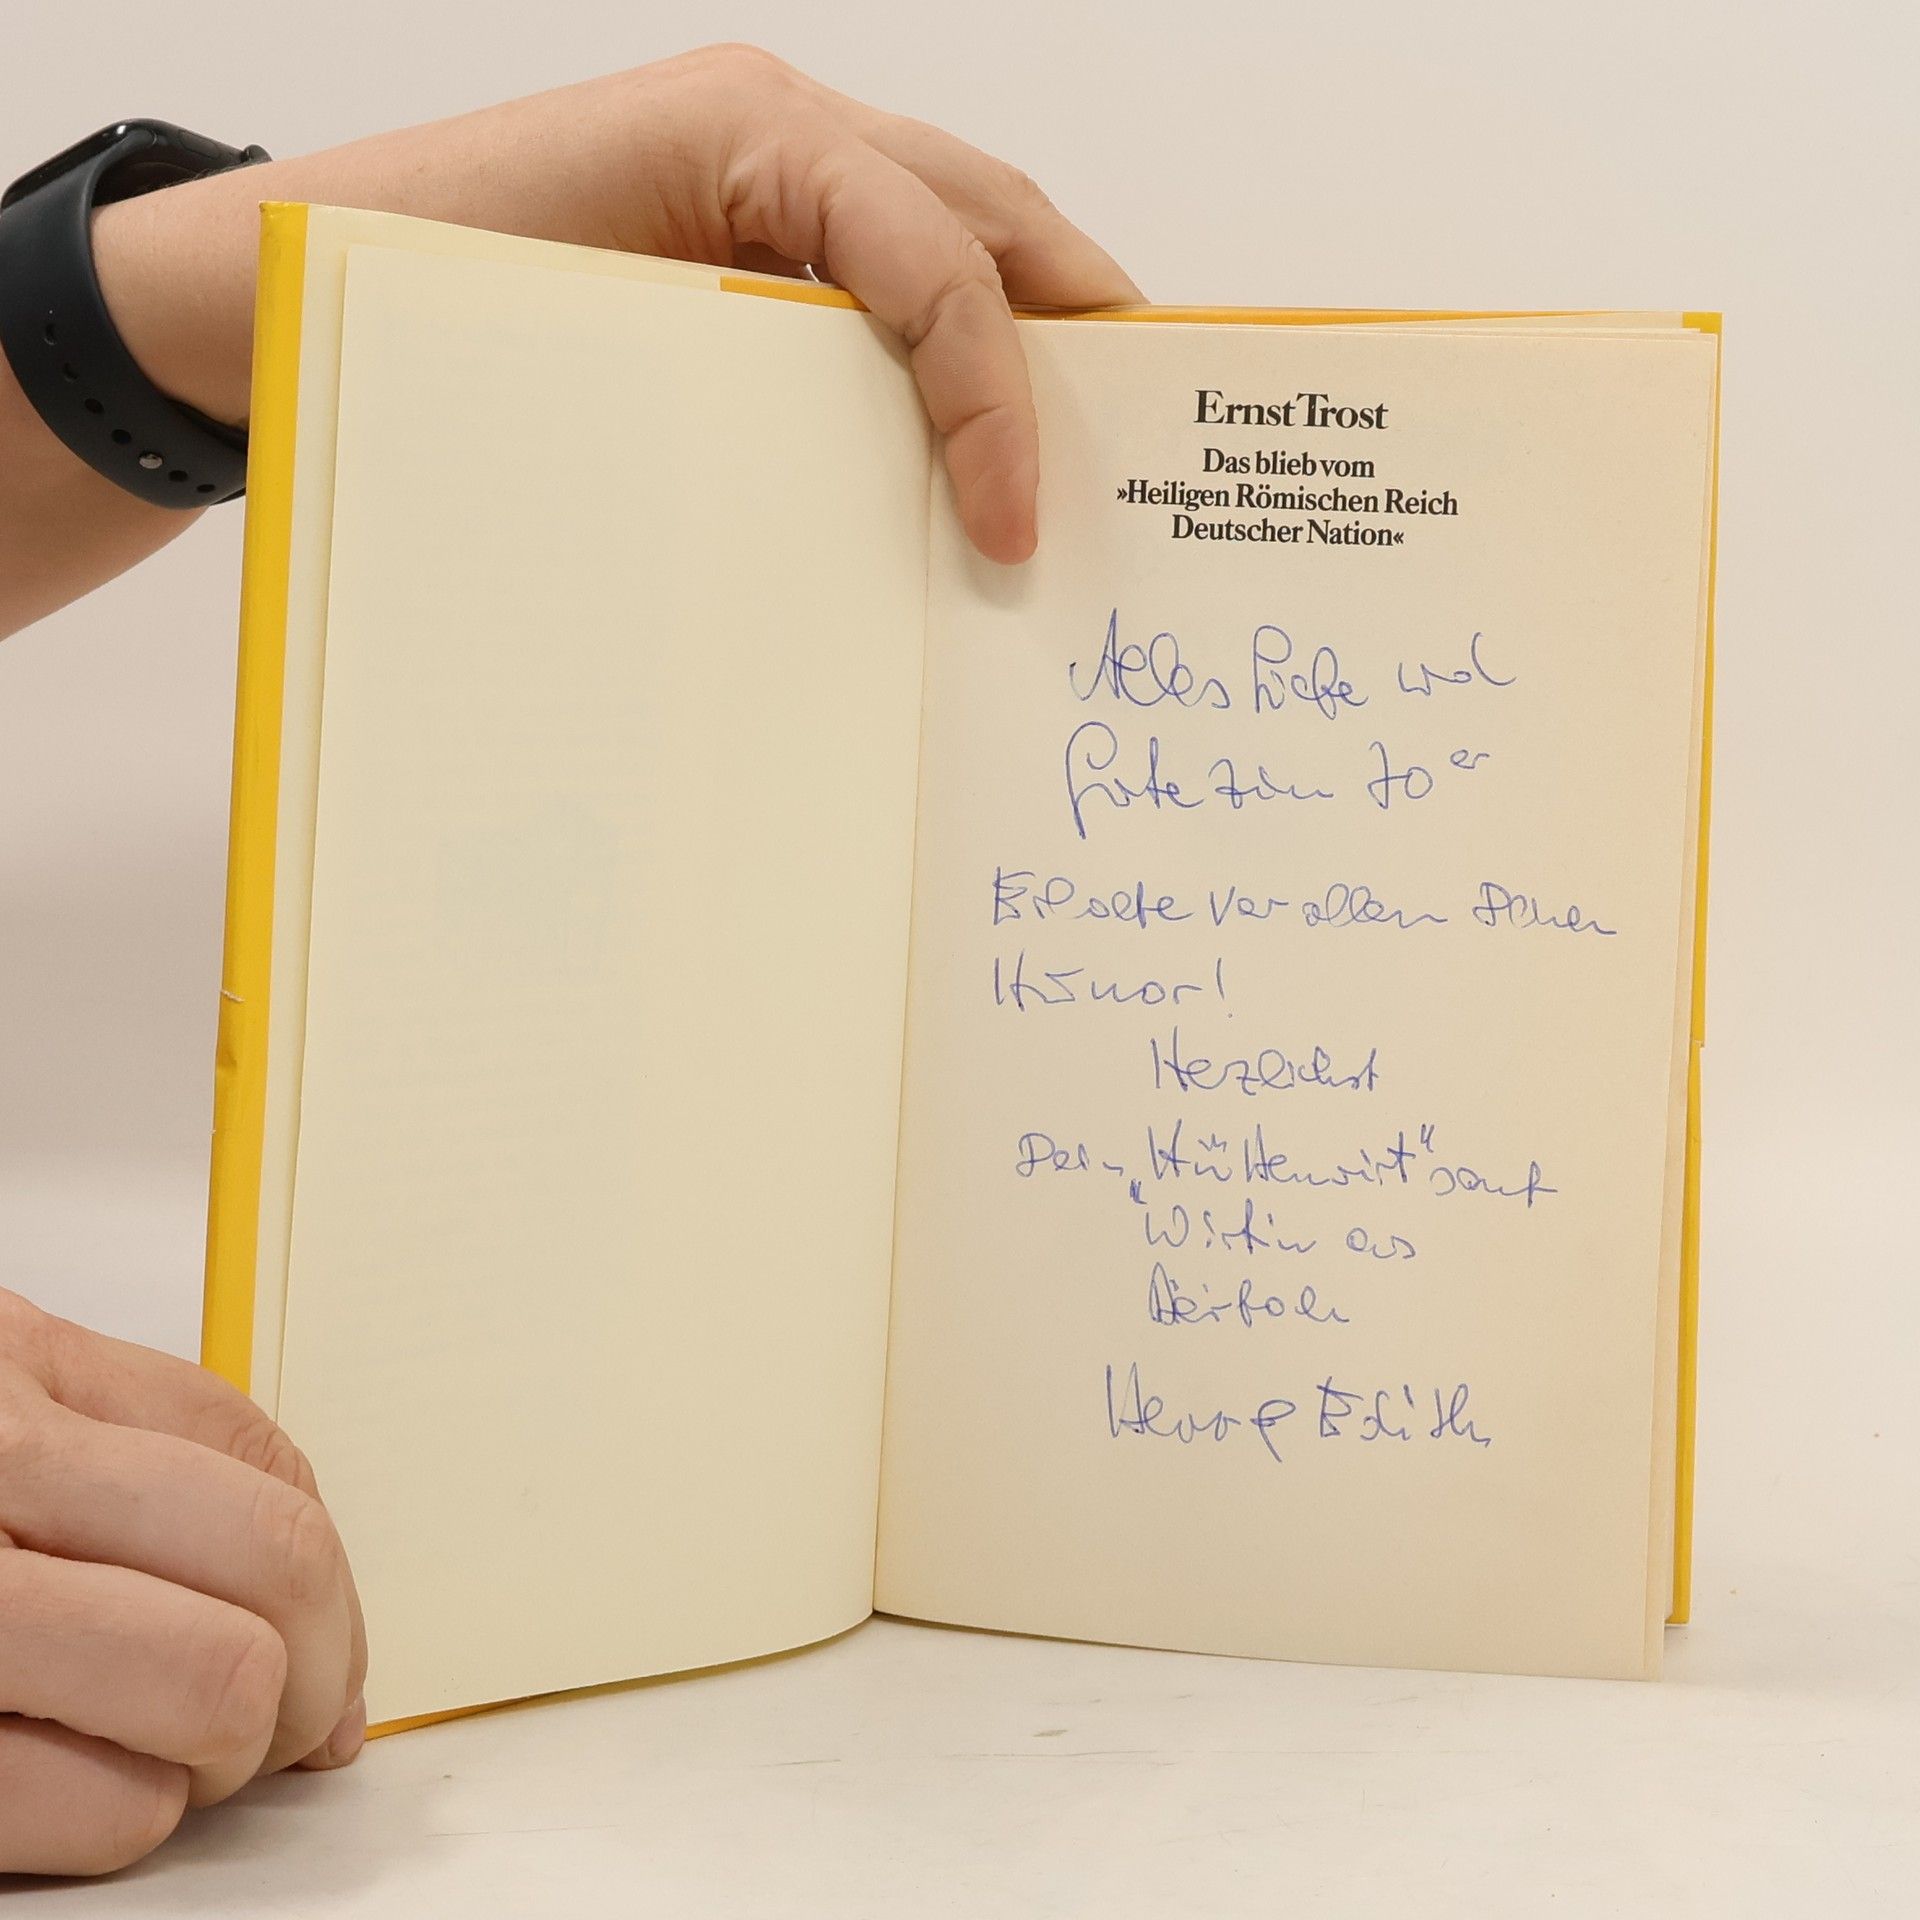 Ernst Trost
Das blieb vom
»Heiligen Römischen Reich
Deutscher Nation«
Alles Liebe und
Gute zum 70er
Erhalte vor allem Deinen
Humor!
Herzlichst
Dein „Hüttenwirt" samt
"Wirtin aus
Edith